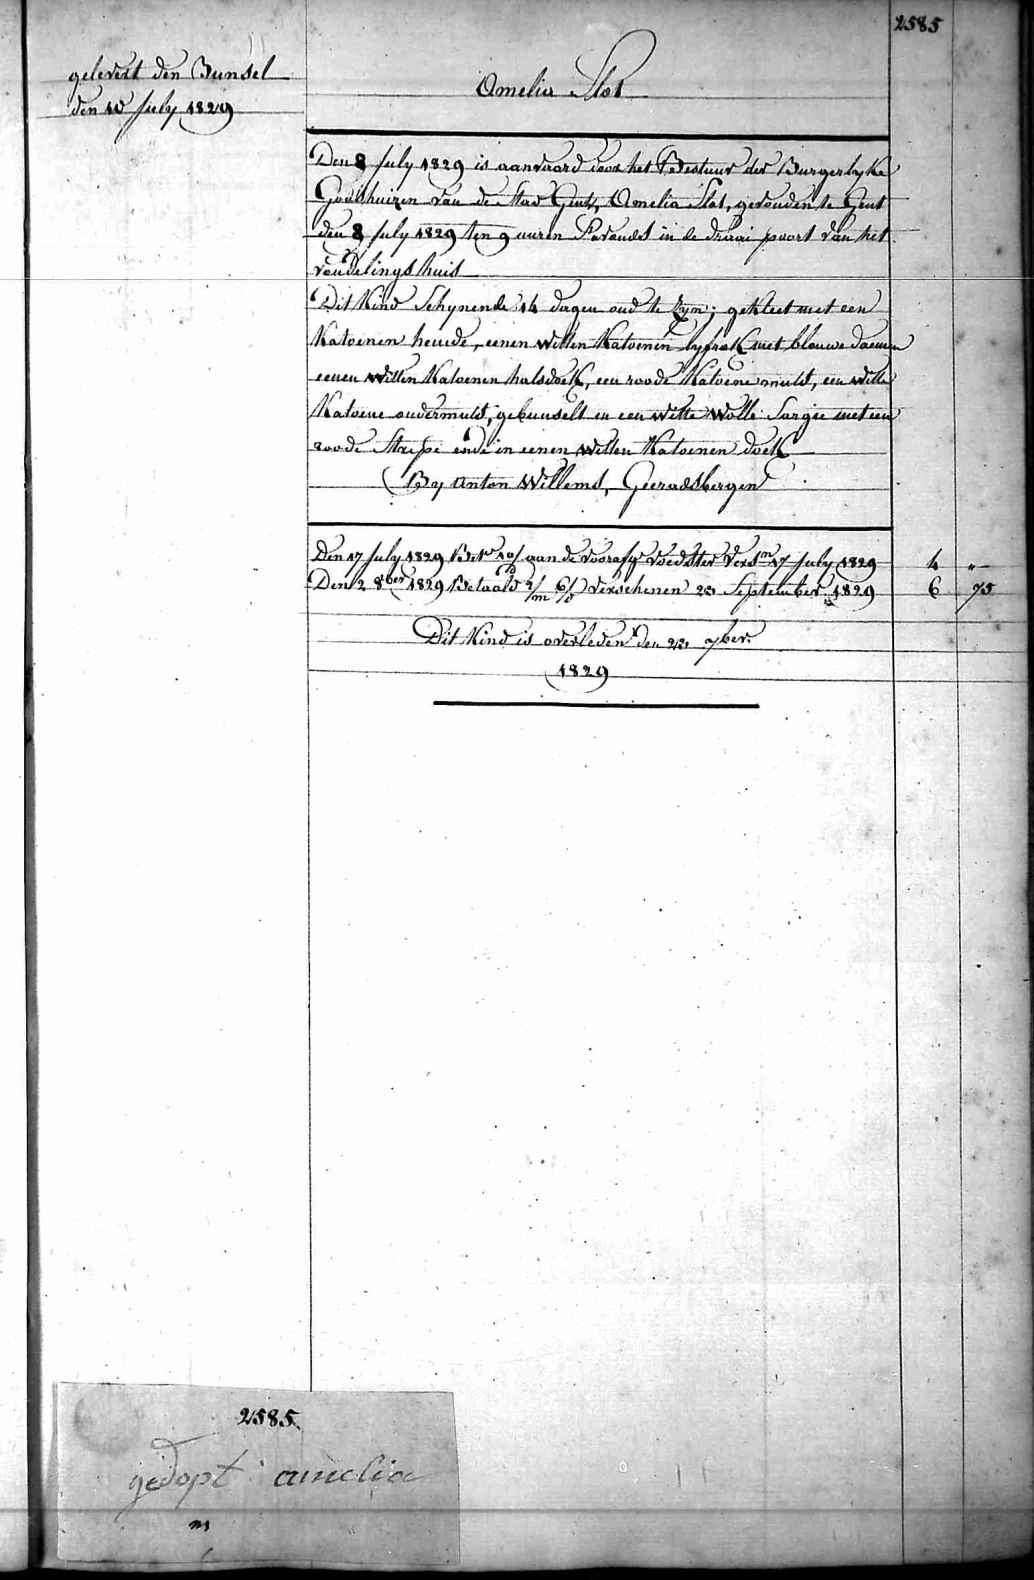 2585
gelevert den Bunsel
den 10 July 1829
Amelia Slot
Den 8 July 1829 is aanvaard door het Bestuur der Burgerlyke
Godshuizen van de Stad Gent, Amelia Slot, gevonden te Gent
den 8 July 1829 ten 9 uuren Savonds in de draai poort van het
vondelingshuis
Dit Kind Schynende 14 dagen oud te Zyn; gekleet met een
Katoenen hemde, eenen witten Katoenen lyfrok met blouwe
eenen Witten Katoenen halsdoek, een roode Katoene muts, een Witte
Katoene ondermuts, gebunselt in een Witte Wolle Sargie met een
roode Stripe ende in eenen Witten Katoenen doek
By Anton Willems, Geeradsbergen
Den 17 July 1829 aan de voorafg. voedster 17 July 1829 4 "
Den 2 8ber 1829 Betaald verschenen 23 September 1829 6 75
Dit Kind is overleden den 23 7ber
1829
2585.
gedopt amelia